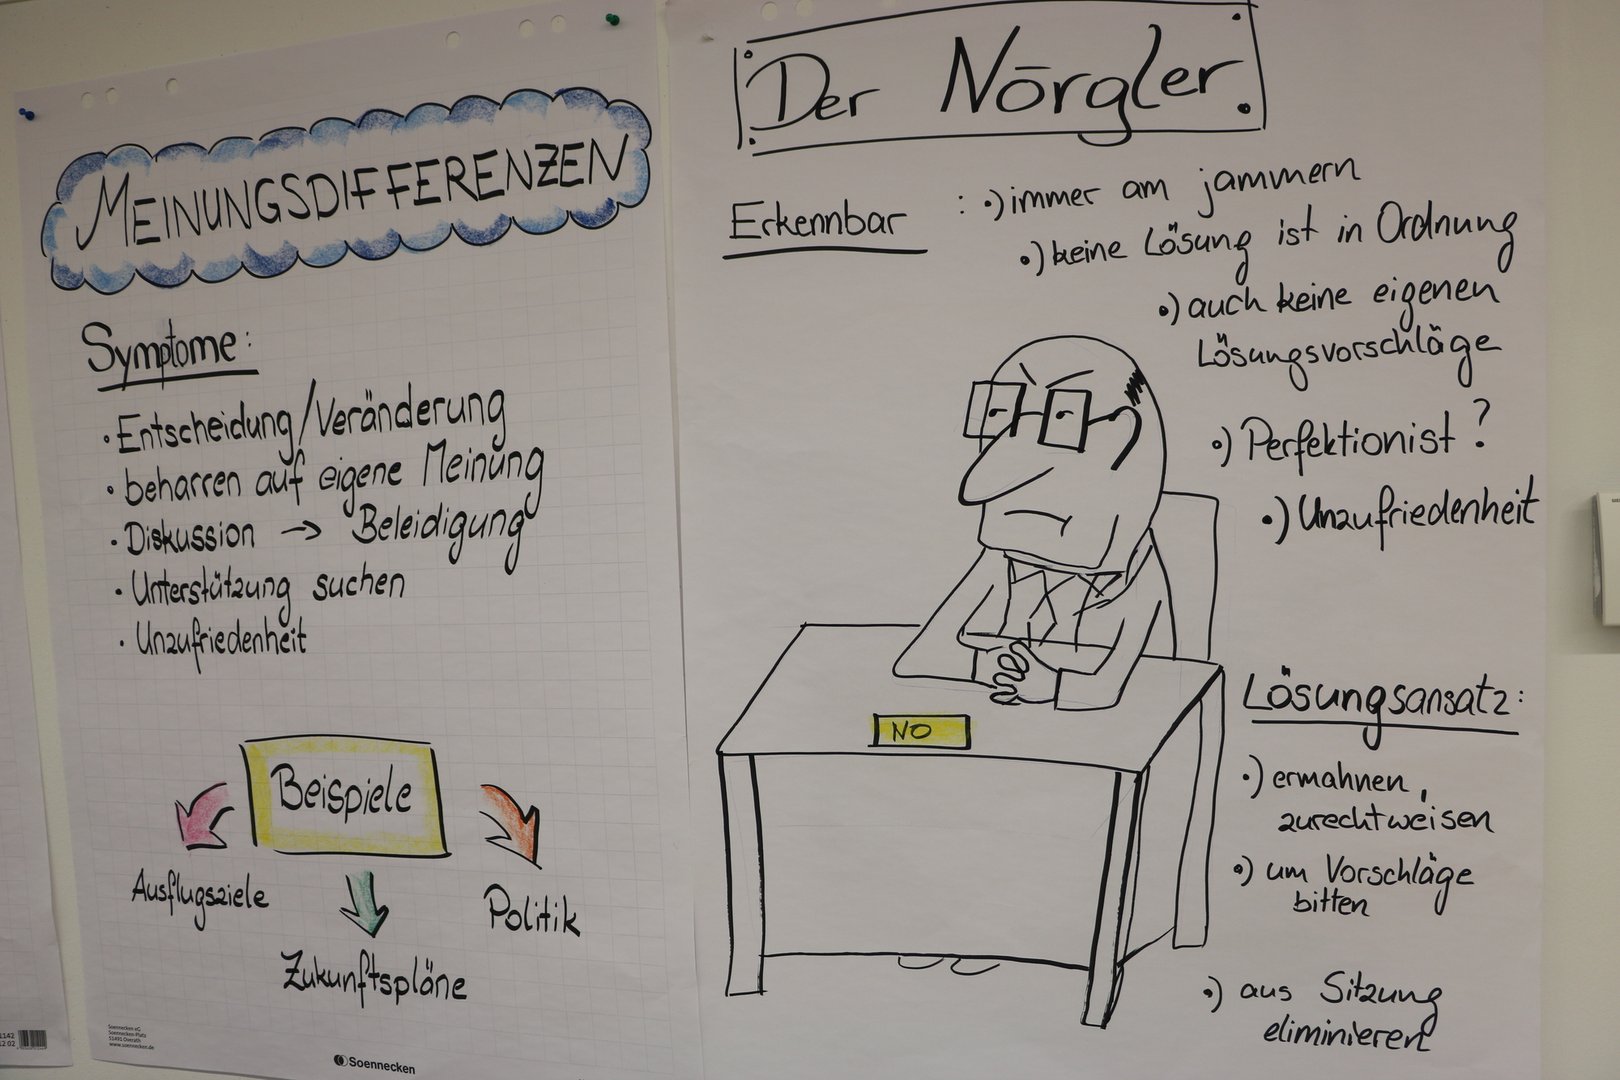 MEINUNGSDIFFERENZEN
Symptome:
· Entscheidung/Veränderung
· beharren auf eigene Meinung
· Diskussion → Beleidigung
· Unterstützung suchen
· Unzufriedenheit
Beispiele
Ausflugsziele
Zukunftspläne
Politik
Soennecken eG
Soennecken-Platz
51491 Overath
www.soennecken.de
Soennecken
1142
Der Nörgler
Erkennbar : •) immer am jammern
•) keine Lösung ist in Ordnung
•) auch keine eigenen
Lösungsvorschläge
•) Perfektionist ?
•) Unzufriedenheit
NO
Lösungsansatz:
•) ermahnen,
zurechtweisen
•) um Vorschläge
bitten
•) aus Sitzung
eliminieren